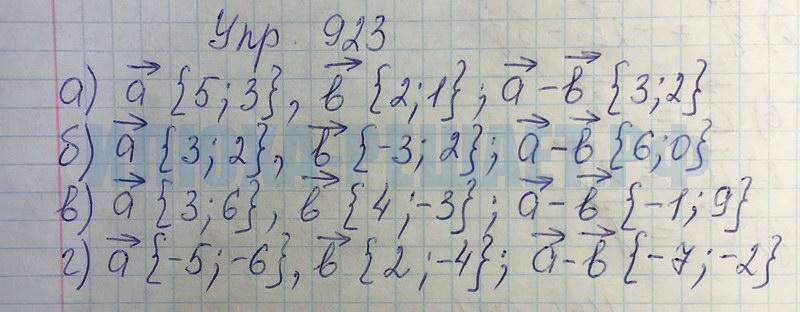 Упр. 923
а) a⃗ {5; 3}, b⃗ {2; 1}; a⃗ - b⃗ {3; 2}
б) a⃗ {3; 2}, b⃗ {-3; 2}; a⃗ - b⃗ {6; 0}
в) a⃗ {3; 6}, b⃗ {4; -3}; a⃗ - b⃗ {-1; 9}
г) a⃗ {-5; -6}, b⃗ {2; -4}; a⃗ - b⃗ {-7; -2}